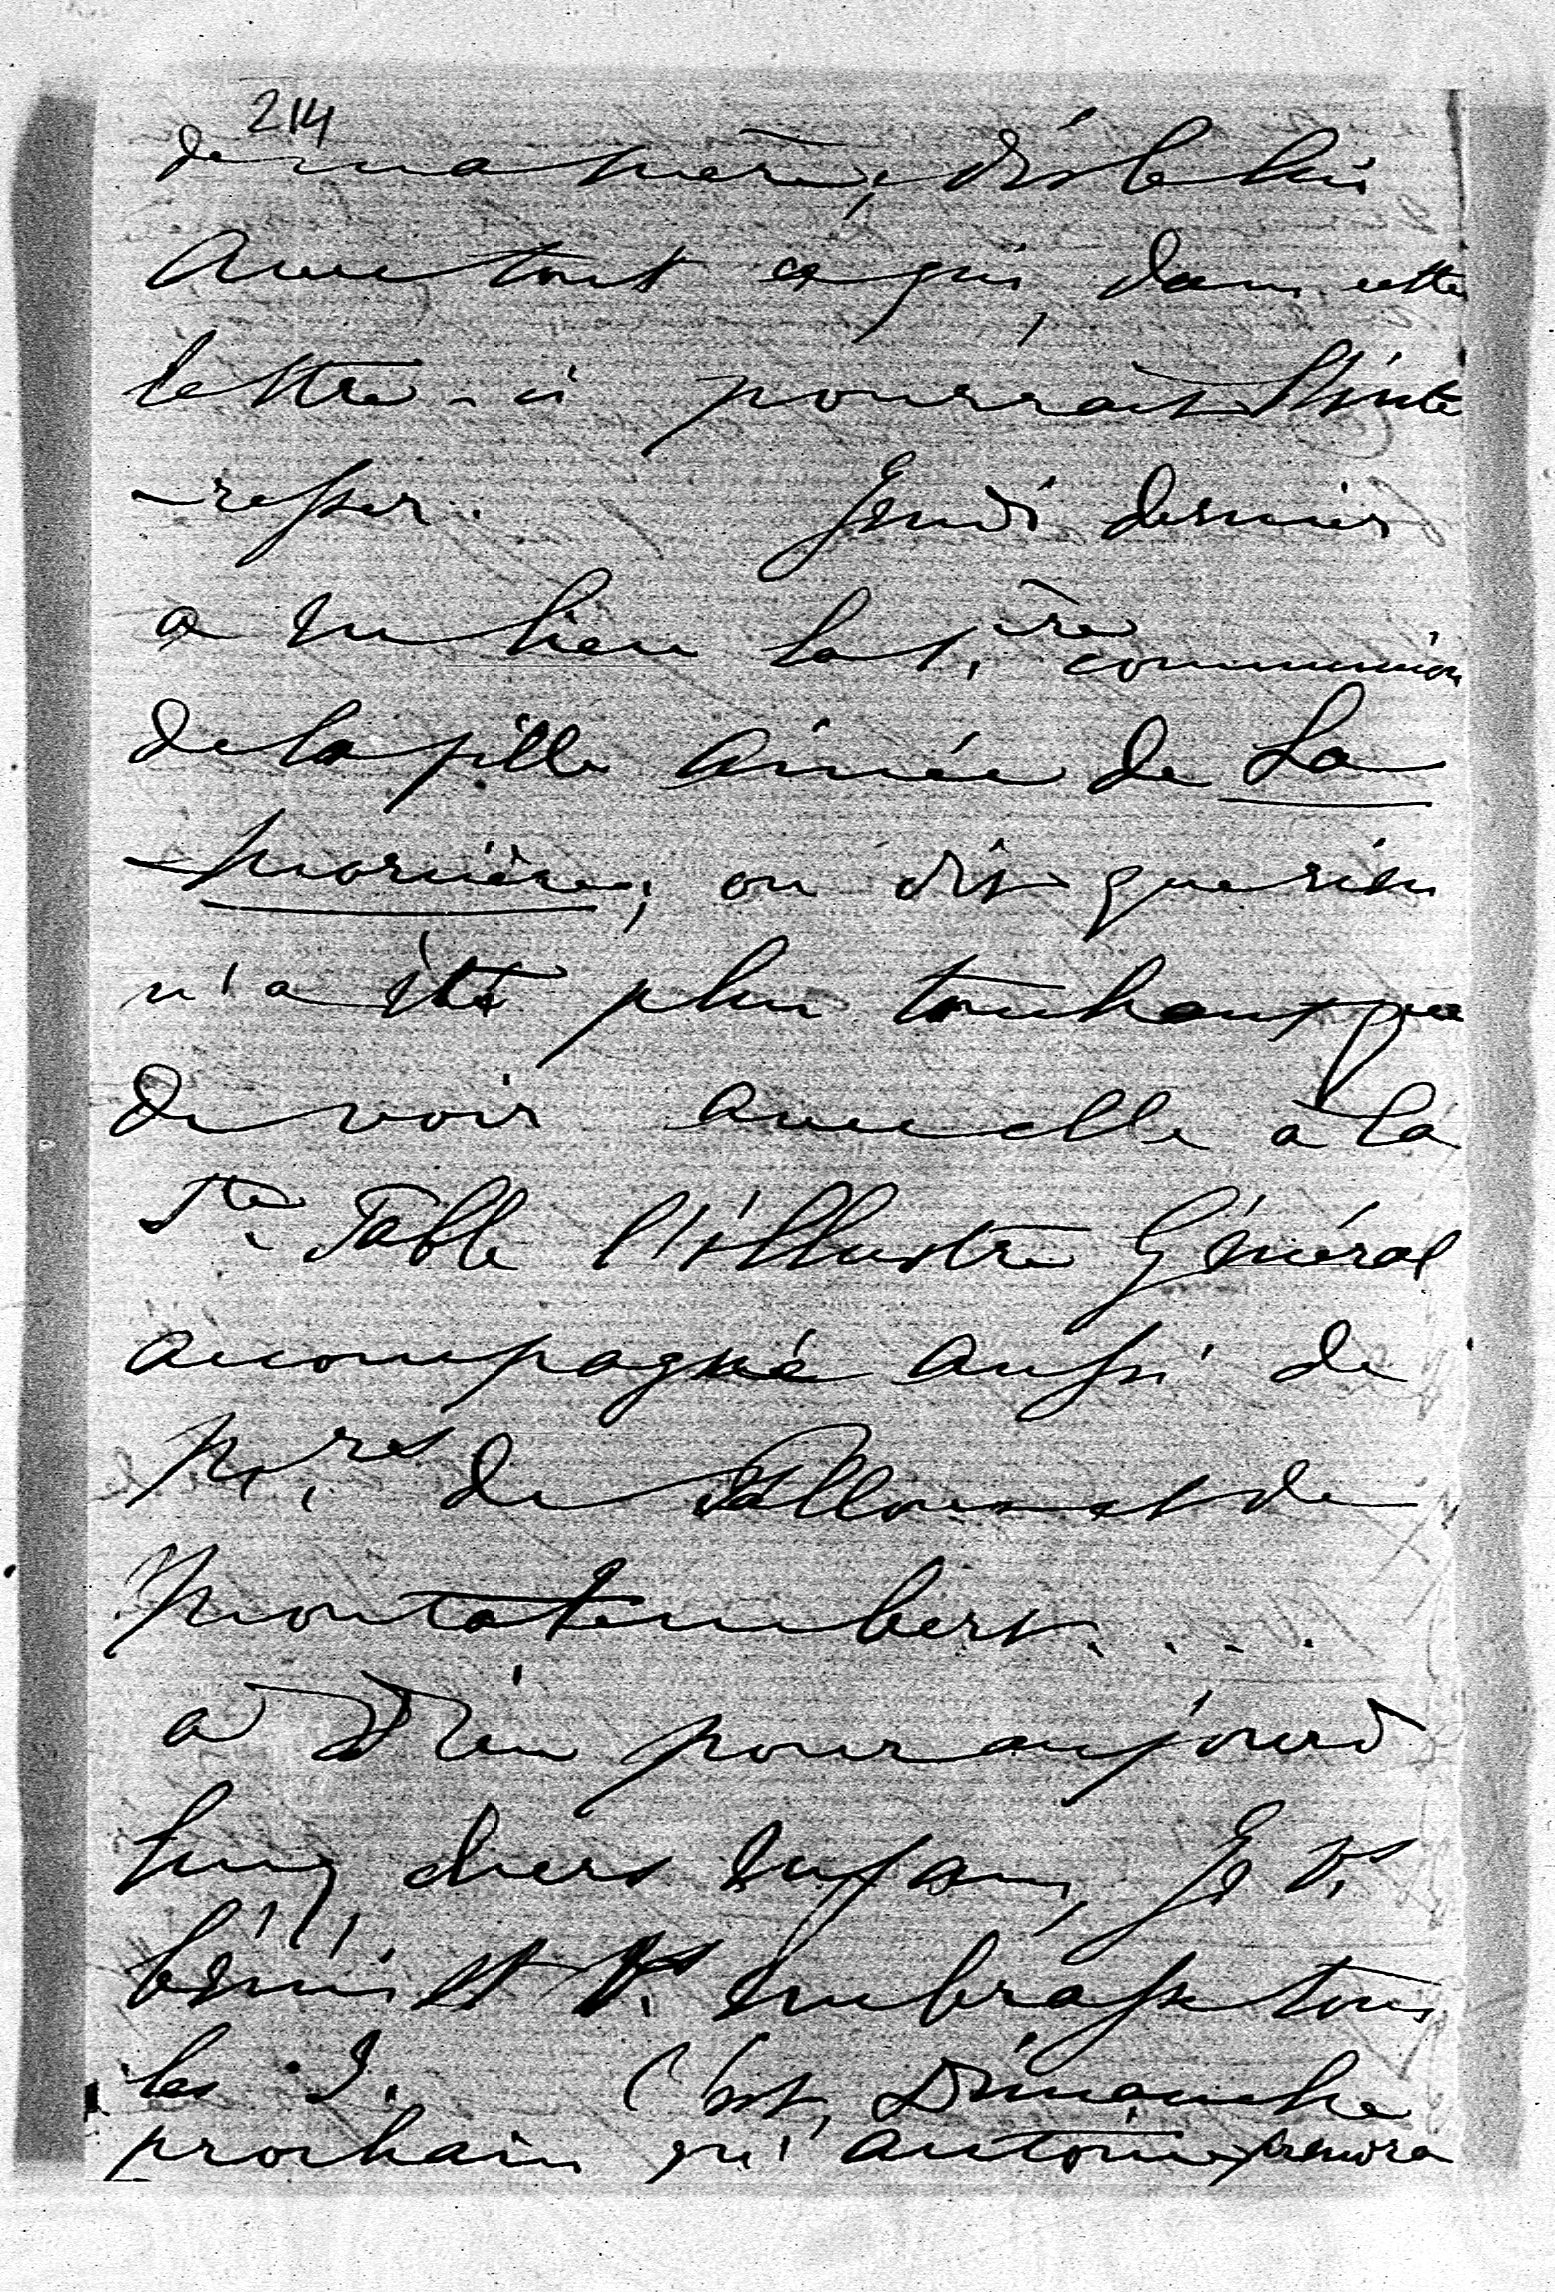 214
de ma mère, dis le lui
avec tout ce qui, dans cette
lettre-ci pourrait l'inté
-resser. Jeudi dernier
a eu lieu la 1.ère communion
de la fille ainée de La
-moricière; on dit que rien
n'a été plus touchant que
de voir avec elle à la
Ste Table l'illustre Général
accompagné aussi de
Mrs de Falloux et de
Montalembert....
a Dieu pour aujourd
huy, chers enfans, Je vs
bénis et vs embrasse tous
les 3. C'est, Dimanche
prochain qu'antoine prendra